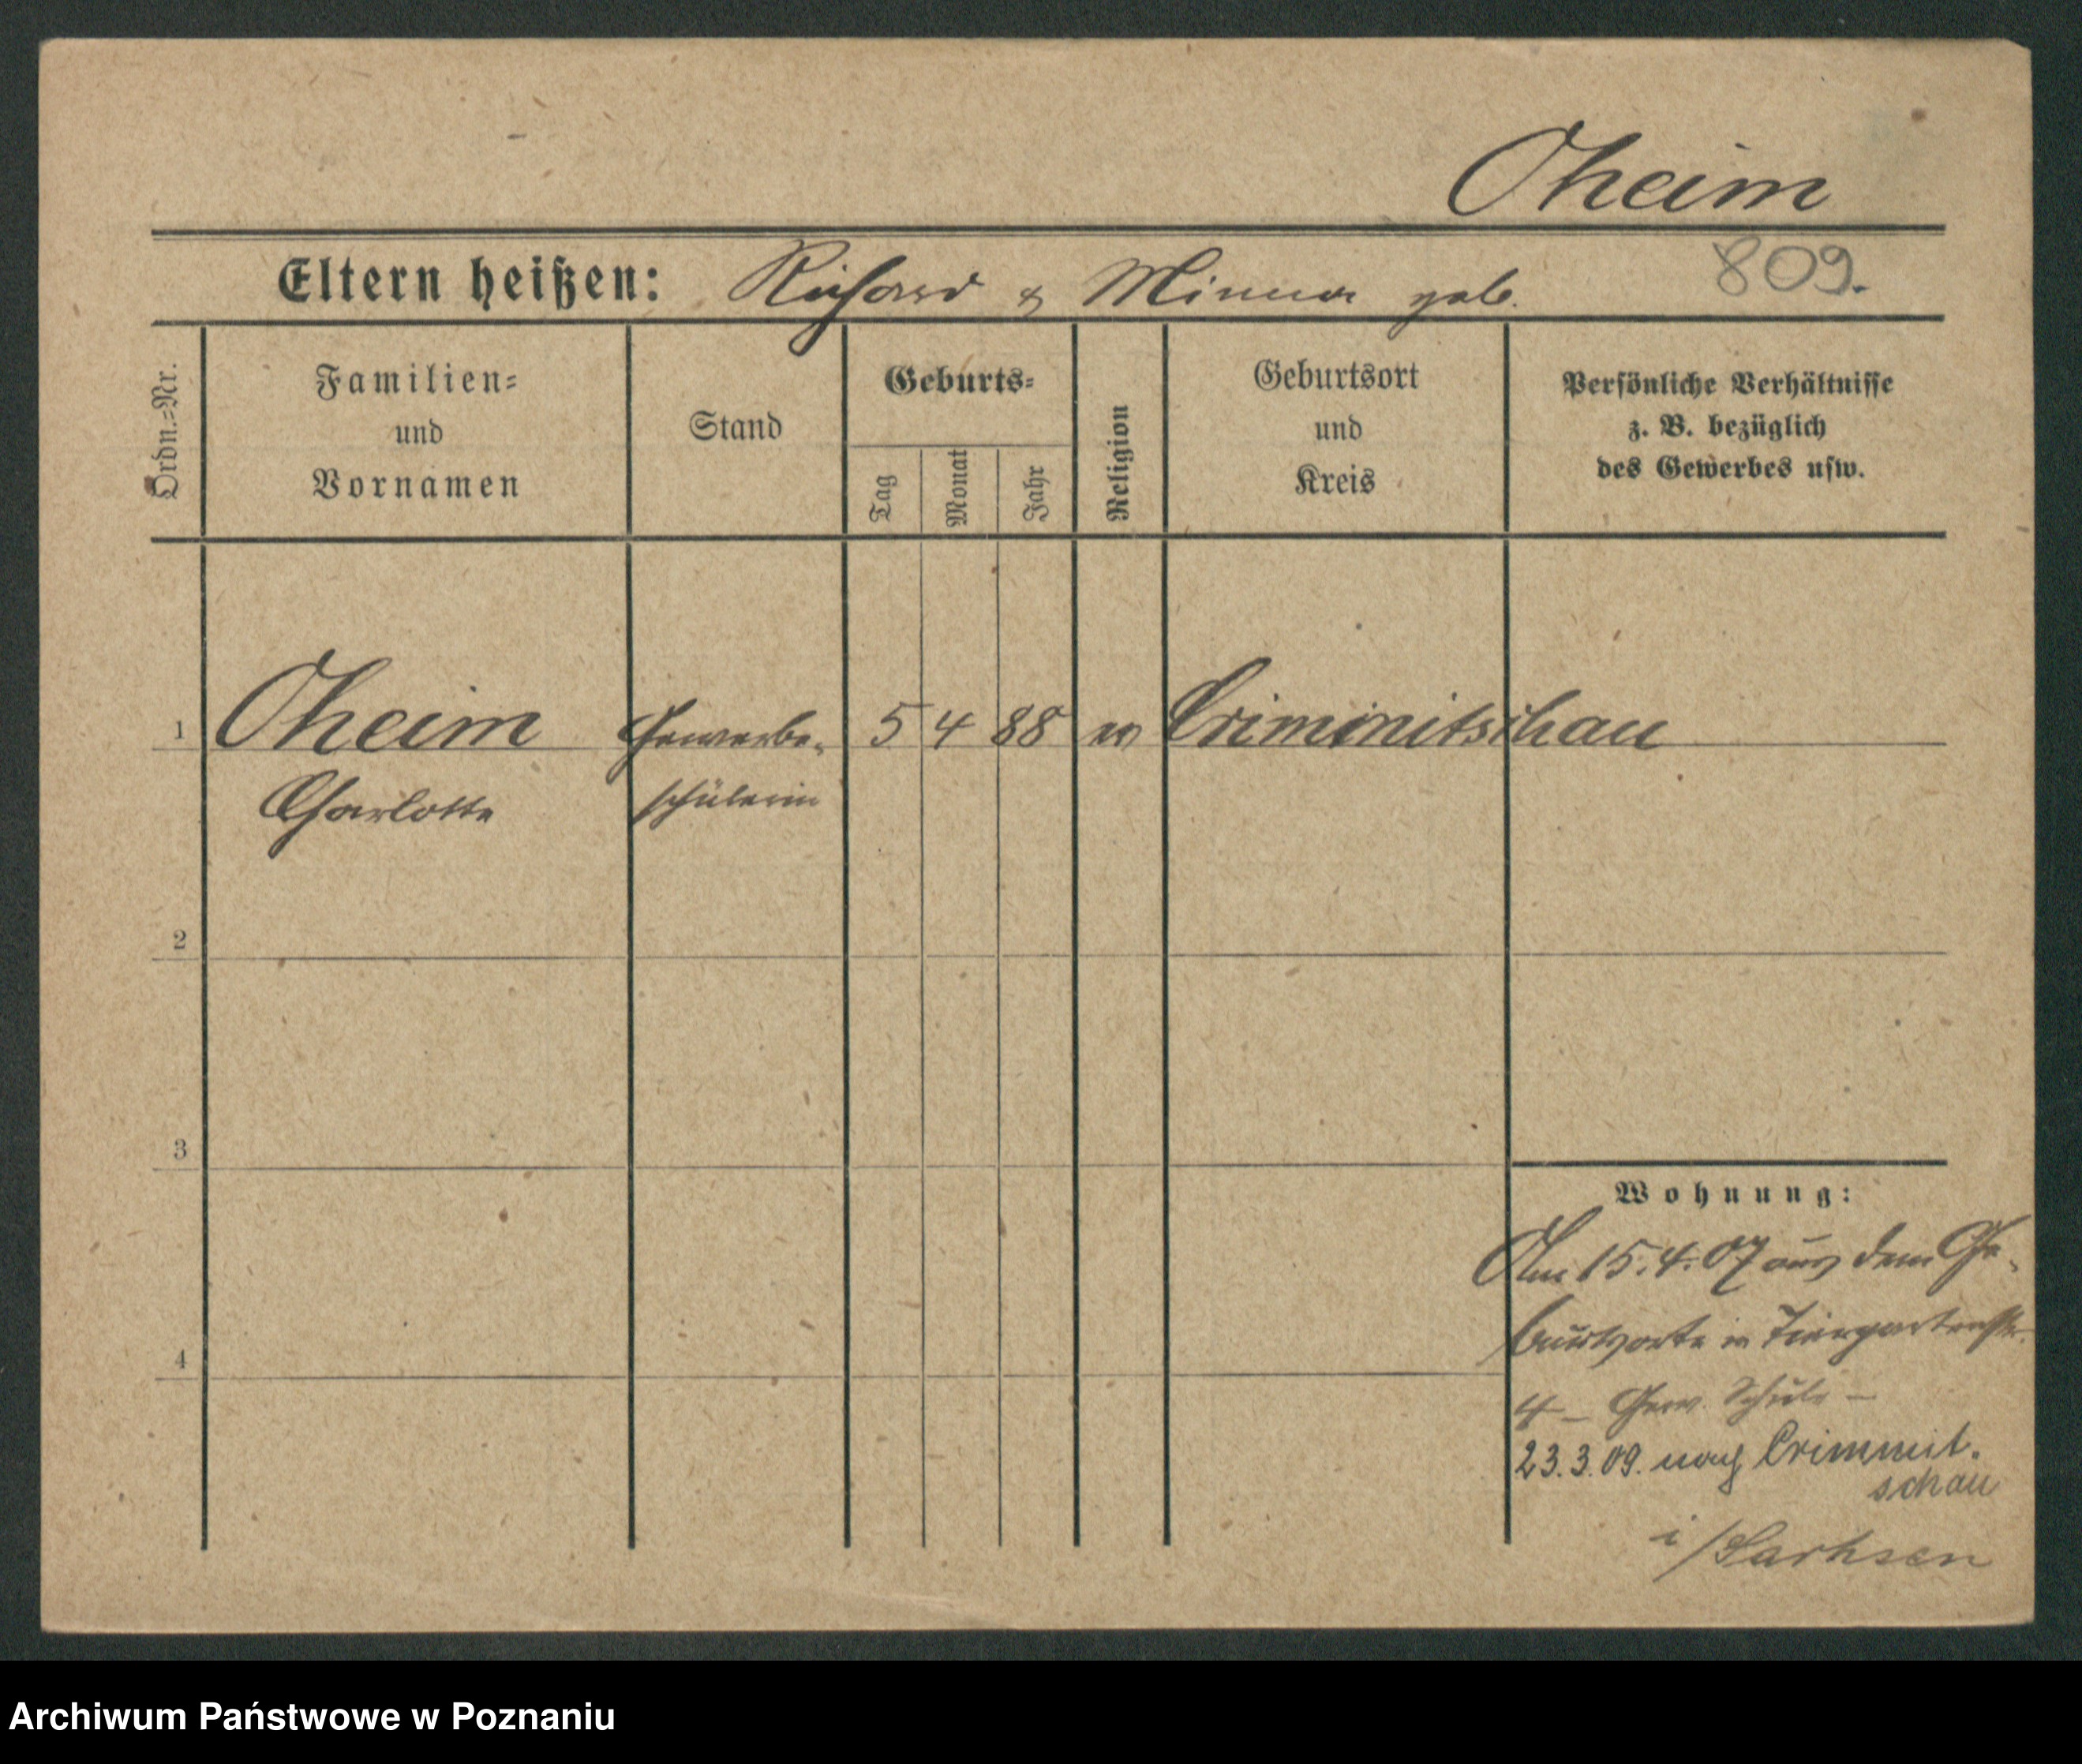 Oheim
Eltern heißen: Richard & Minna geb. 809.
Ordn.=Nr.
Familien=
und
Vornamen
Stand
Geburts=
Tag
Monat
Jahr
Religion
Geburtsort
und
Kreis
Persönliche Verhältnisse
z. B. bezüglich
des Gewerbes usw.
1 Oheim Gewerbe- 5 4 88 ev Crimmitschau
Charlotte schülerin
2
3
4
Wohnung:
Am 15.4.07 aus dem Ge-
burtsorte in Tiergartenstr.
4 — Gew. Schule —
23.3.09. nach Crimmit.
schau
i/Sachsen
Archiwum Państwowe w Poznaniu